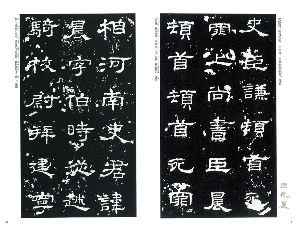 史臣謙頓首死
罪上尚書臣晨
頓首頓首死罪
相河南史君諱
晨字伯時從越
騎校尉拜建寧